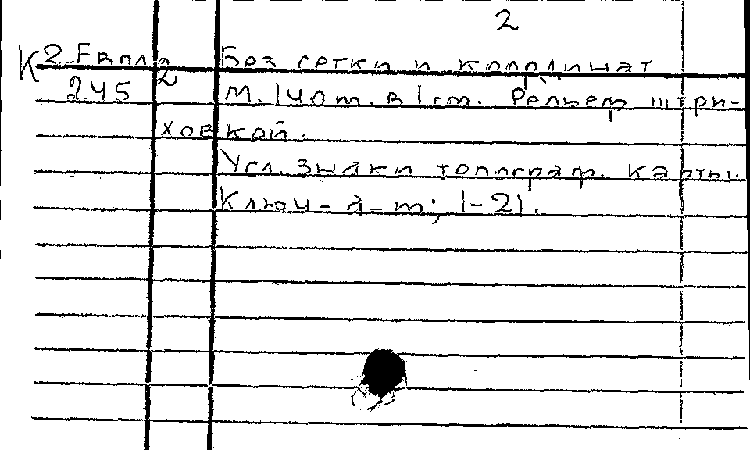 2
К 2 Европа 2 Без сетки и координат
245 М. 140 m. в 1 cm. Рельеф штри-
ховкой.
Усл. знаки топограф. карты.
Ключ - a - m; 1-21.